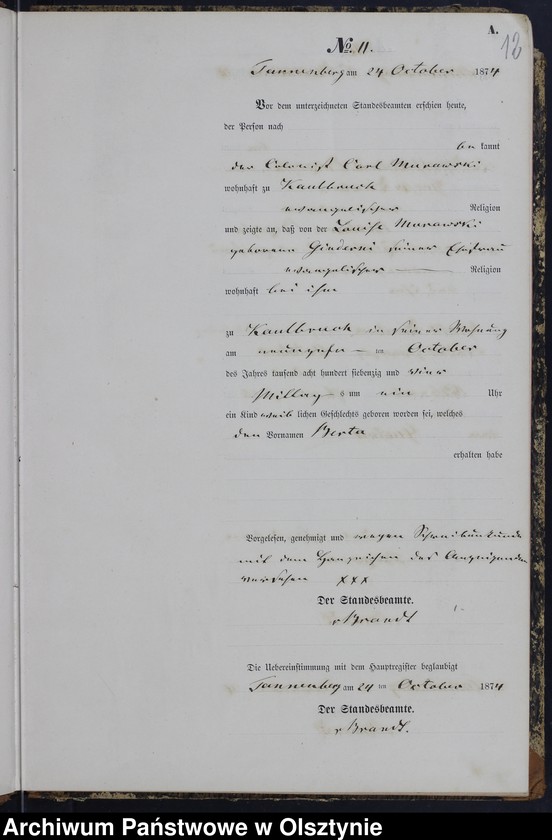 A.
12
No. 11.
Tannenberg am 24 October 1874
Vor dem unterzeichneten Standesbeamten erschien heute,
der Person nach
be kannt
der Colonist Carl Murawski
wohnhaft zu Kaulbruch
evangelischer Religion
und zeigte an, daß von der Louise Murawski
geborenen seiner Ehefrau
evangelischer Religion
wohnhaft bei ihm
zu Kaulbruch in seiner Wohnung
am neunzehn ten October
des Jahres tausend acht hundert siebenzig und vier
Mittag s um ein Uhr
ein Kind weib lichen Geschlechts geboren worden sei, welches
den Vornamen Berta
erhalten habe
Vorgelesen, genehmigt und wegen Schreibunkunde
mit dem Handzeichen des Anzeigenden
versehen XXX
Der Standesbeamte.
v Brandt
Die Uebereinstimmung mit dem Hauptregister beglaubigt
Tannenberg am 24 ten October 1874
Der Standesbeamte.
v Brandt.
Archiwum Państwowe w Olsztynie